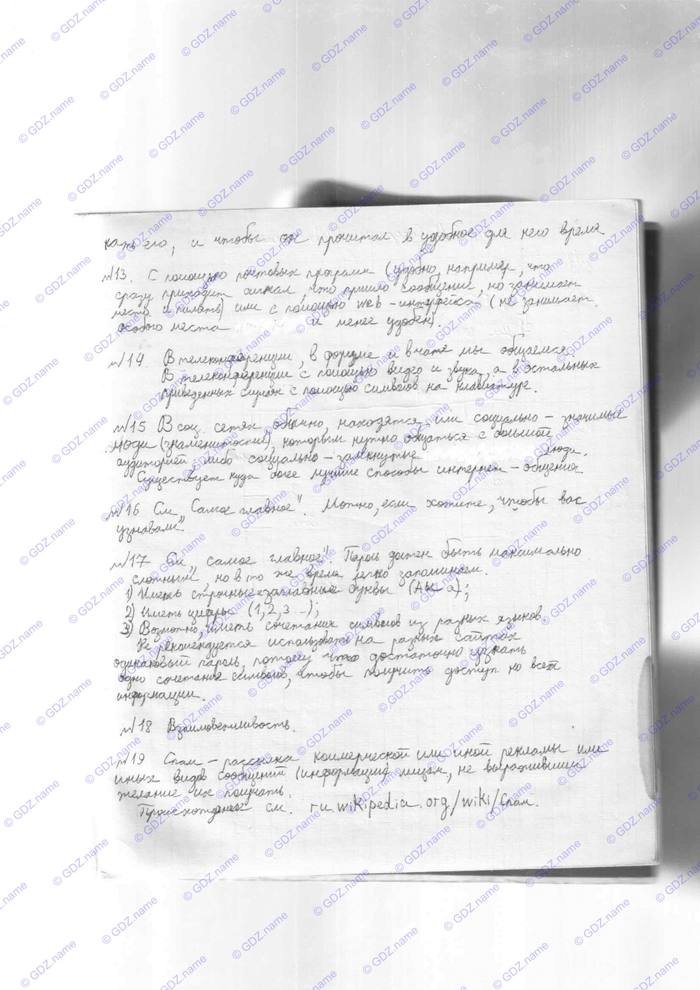 кать его, и чтобы он прочитал в удобное для него время
№13. С помощью почтовых программ (удобно, например, что
сразу приходит сигнал, что пришло сообщение, но занимает
место и память) или с помощью web-интерфейса, (не занимает
особо места и менее удобен).
№14 В телеконференции, в форуме и в чате мы общаемся.
В телеконференции с помощью видео и звука, а в остальных
приведенных случаях с помощью символов на клавиатуре.
№15 В соц. сетях, обычно, находятся или социально-значимые
люди (знаменитости), которым нужно общаться с большой
аудиторией, либо социально-замкнутые люди.
Существует куда более лучшие способы интернет-общения
№16 См. „Самое главное". Можно, если хотите, чтобы вас
узнавали"
№17 См „самое главное". Пароль должен быть максимально
сложным, но в то же время легко запоминаем.
1) Иметь строчные и заглавные буквы (Аа);
2) Иметь цифры (1,2,3 -);
3) Возможно, иметь сочетания символов из разных языков.
Не рекомендуется использовать на разных сайтах
одинаковый пароль, потому что достаточно узнать
одно сочетание символов, чтобы получить доступ ко всей
информации.
№18 Взаимовежливость.
№19 Спам - рассылка коммерческой или иной рекламы или
иных видов сообщений (информации) лицам, не выражавшим
желание их получать.
Происхождение см. ru.wikipedia.org/wiki/Спам.
© GDZ.name